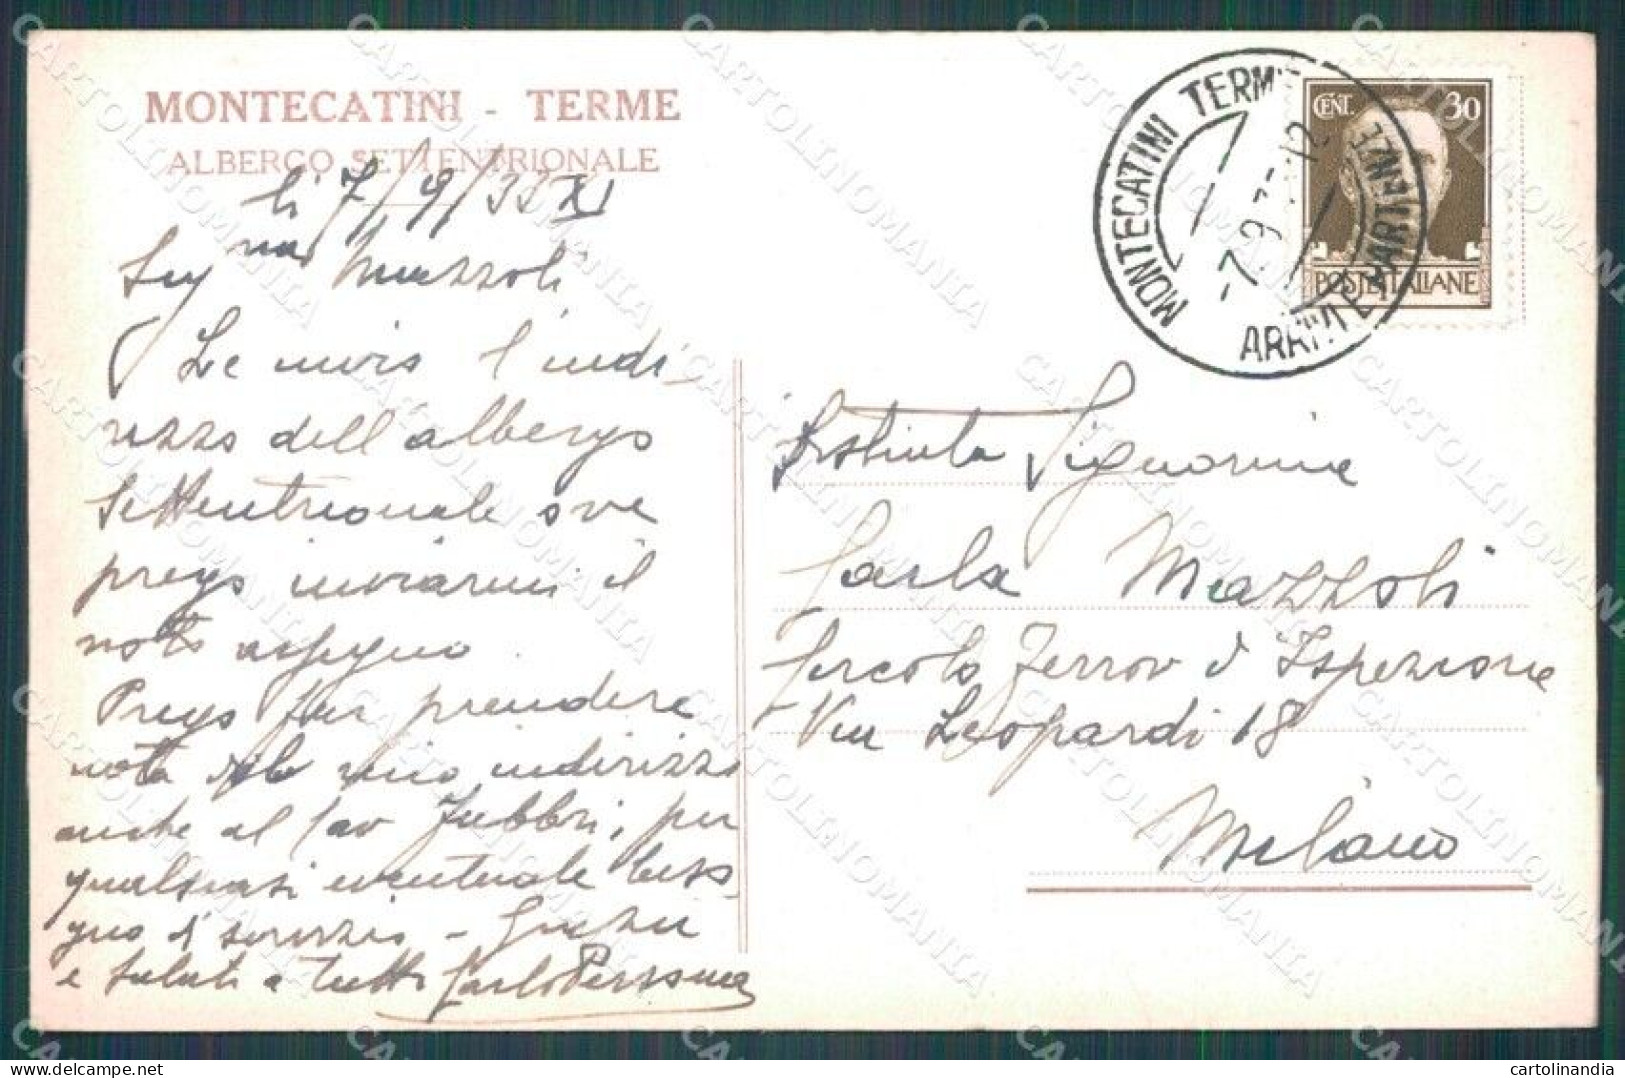 MONTECATINI - TERME
ALBERGO SETTENTRIONALE
li 7/9/33 XI
Sig na Mazzoli
Le invio l'indi
rizzo dell'albergo
Settentrionale ove
prego inviarmi il
noto assegno
Prego far prendere
nota del mio indirizzo
anche al Cav Fabbri, per
qualsiasi eventuale biso
gno di servizio - Grazie
e saluti a tutti Carlo
MONTECATINI TERME
ARRIVI E PARTENZE
-7.9.33-12
CENT. 30
POSTE ITALIANE
Distinta Signorina
Carla Mazzoli
Circolo Ferrov d'Ispezione
Via Leopardi 18
Milano
CARTOLINOMANIA
cartolinandia